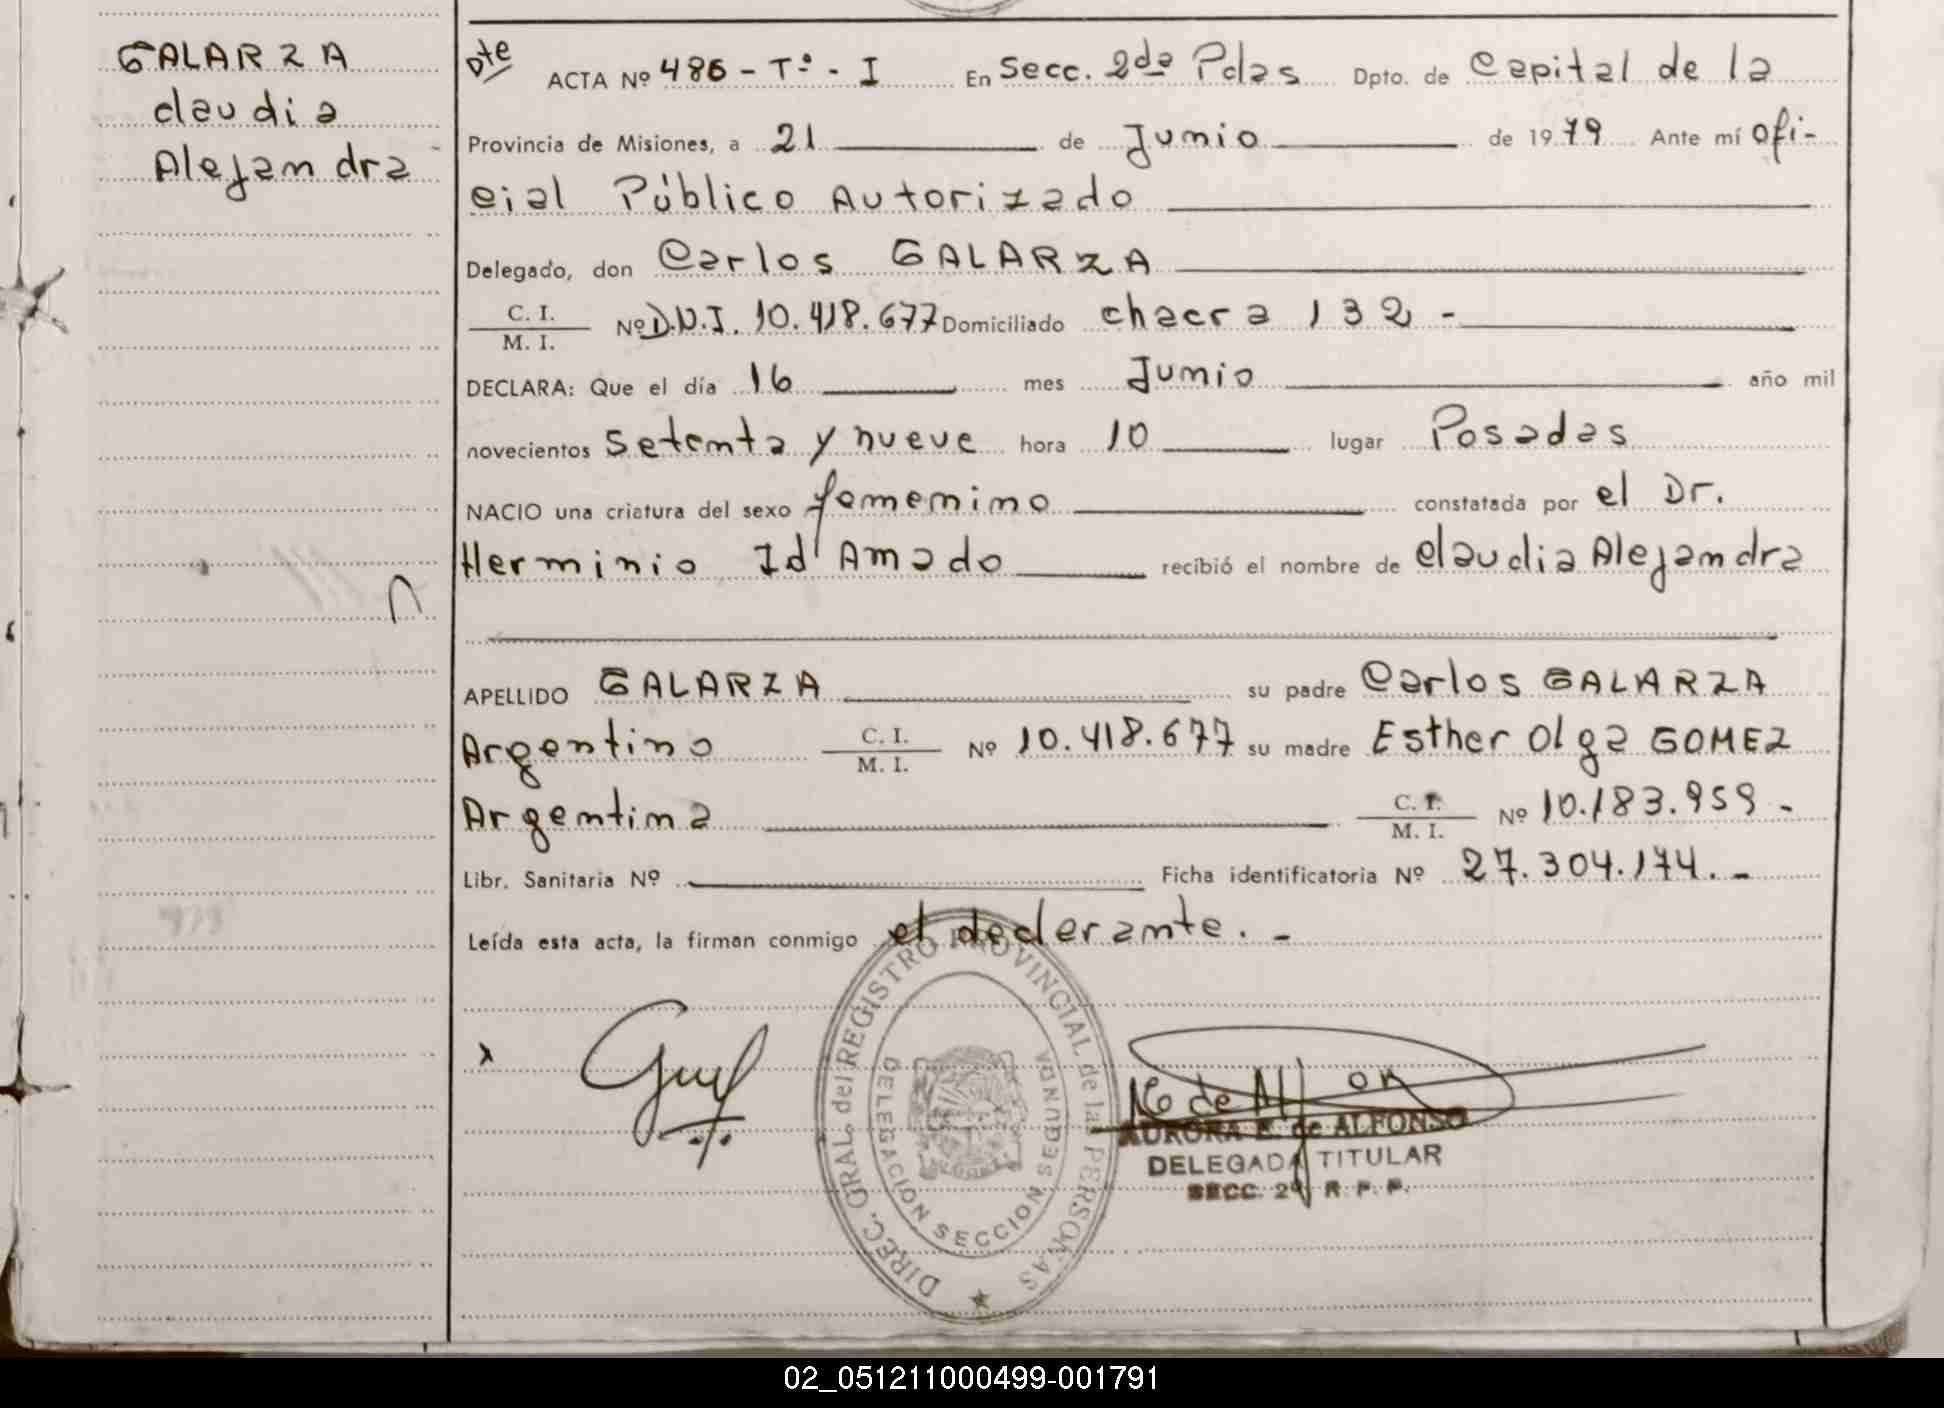 GALARZA
Claudia
Alejandra
Dte
ACTA Nº 486 - Tº - I En Secc. 2da Pdas Dpto. de Capital de la
Provincia de Misiones, a 21 de Junio de 1979 Ante mí Ofi-
cial Público Autorizado
Delegado, don Carlos GALARZA
C. I. / M. I. Nº D.N.I. 10.418.677 Domiciliado chacra 132 -
DECLARA: Que el día 16 mes Junio año mil
novecientos setenta y nueve hora 10 lugar Posadas
NACIO una criatura del sexo femenino constatada por el Dr.
Herminio Id Amado recibió el nombre de Claudia Alejandra
APELLIDO GALARZA su padre Carlos GALARZA
Argentino C. I. / M. I. Nº 10.418.677 su madre Esther Olga GOMEZ
Argentina C. I. / M. I. Nº 10.183.959 -
Libr. Sanitaria Nº Ficha identificatoria Nº 27.304.174. -
Leída esta acta, la firman conmigo el declarante. -
DIREC. GRAL. del REGISTRO PROVINCIAL de las PERSONAS
DELEGACION SECCION SEGUNDA
AURORA E. de ALFONSO
DELEGADA TITULAR
SECC. 2ª R. P. P.
02_051211000499-001791